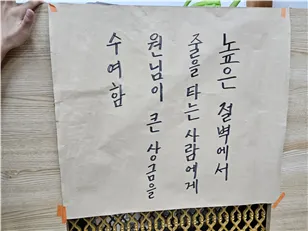 높은 절벽에서
줄을 타는 사람에게
원님이 큰 상금을
수여함